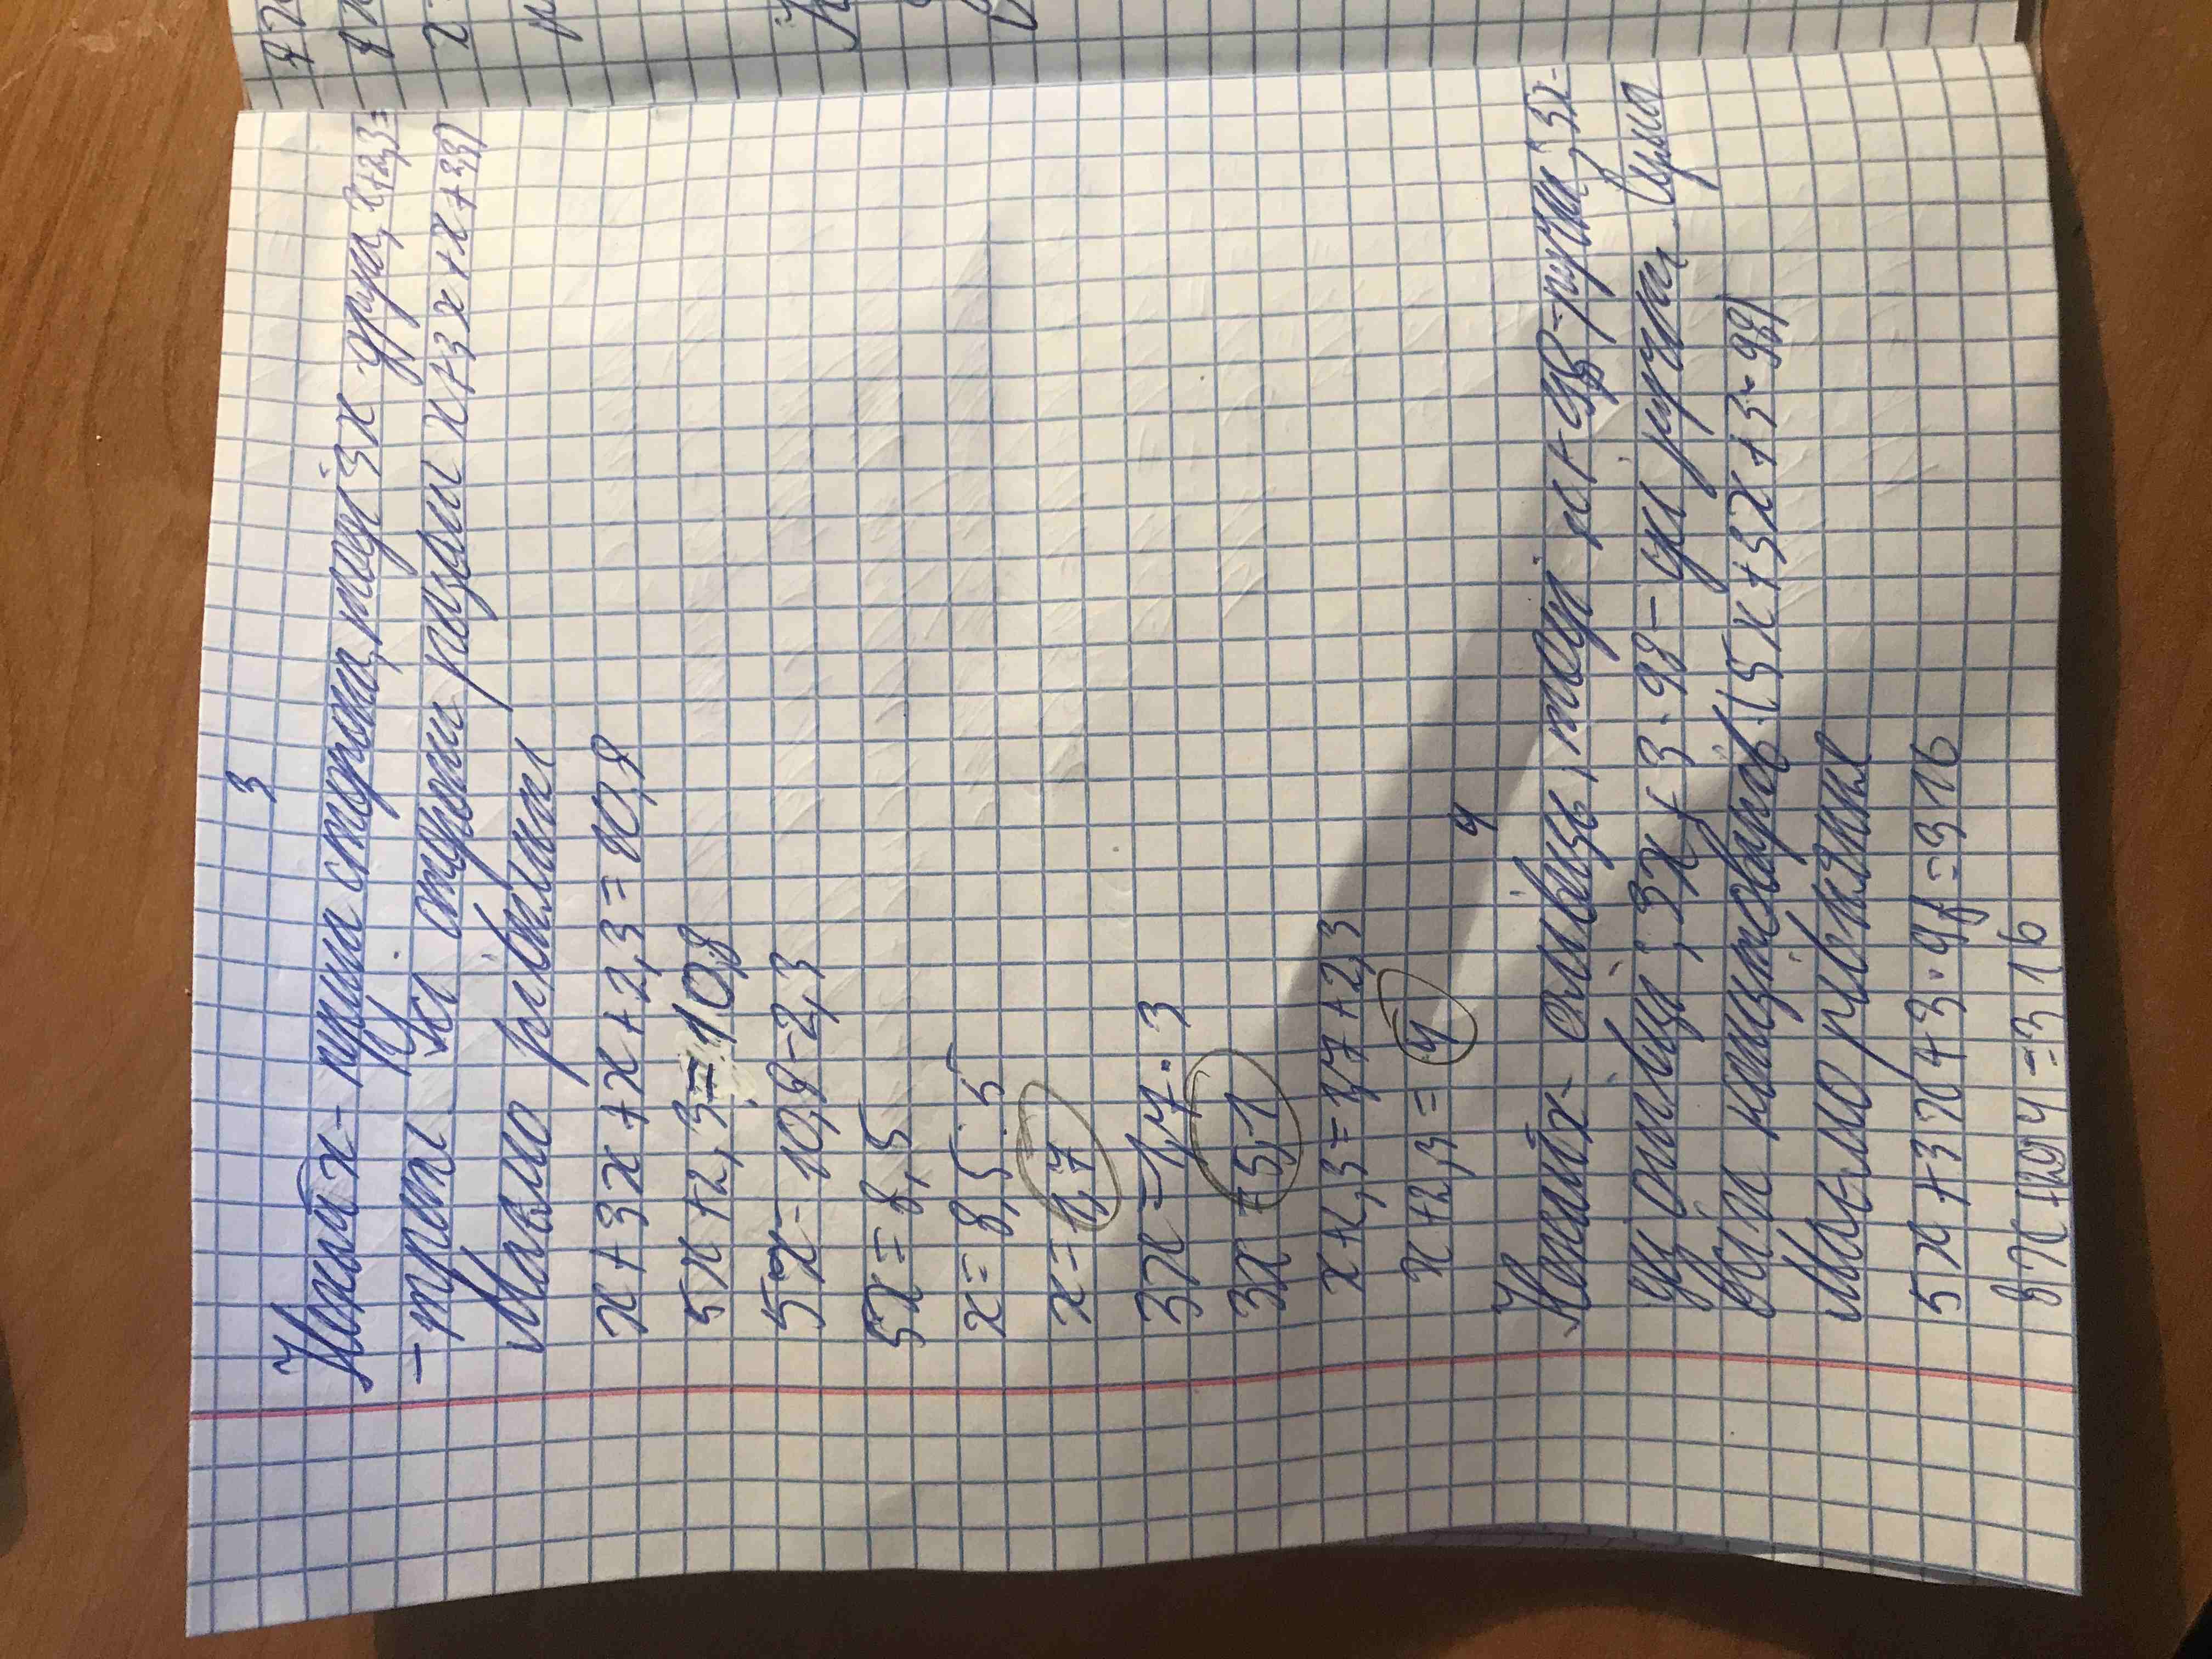 3
Нехай х - перша сторона, тоді 3х друга, х+2,3 =
- третя. Усі сторони разом х+3х+х+2,3)
Маємо рівняння
х+3х+х+2,3=10,8
5х+2,3=10,8
5х=10,8-2,3
5х=8,5
х=8,5:5
х=1,7
3х=1,7·3
3х=5,1
х+2,3=1,7+2,3
х+2,3=4
4
Нехай х- олівець, тоді х+98-ручка, 5х-
усі олівці, 3х+3·98- усі ручки. Ціна
всіх канцтоварів (5х+3х+3·98)
Маємо рівняння
5х+3х+3·98=316
8х+294=316